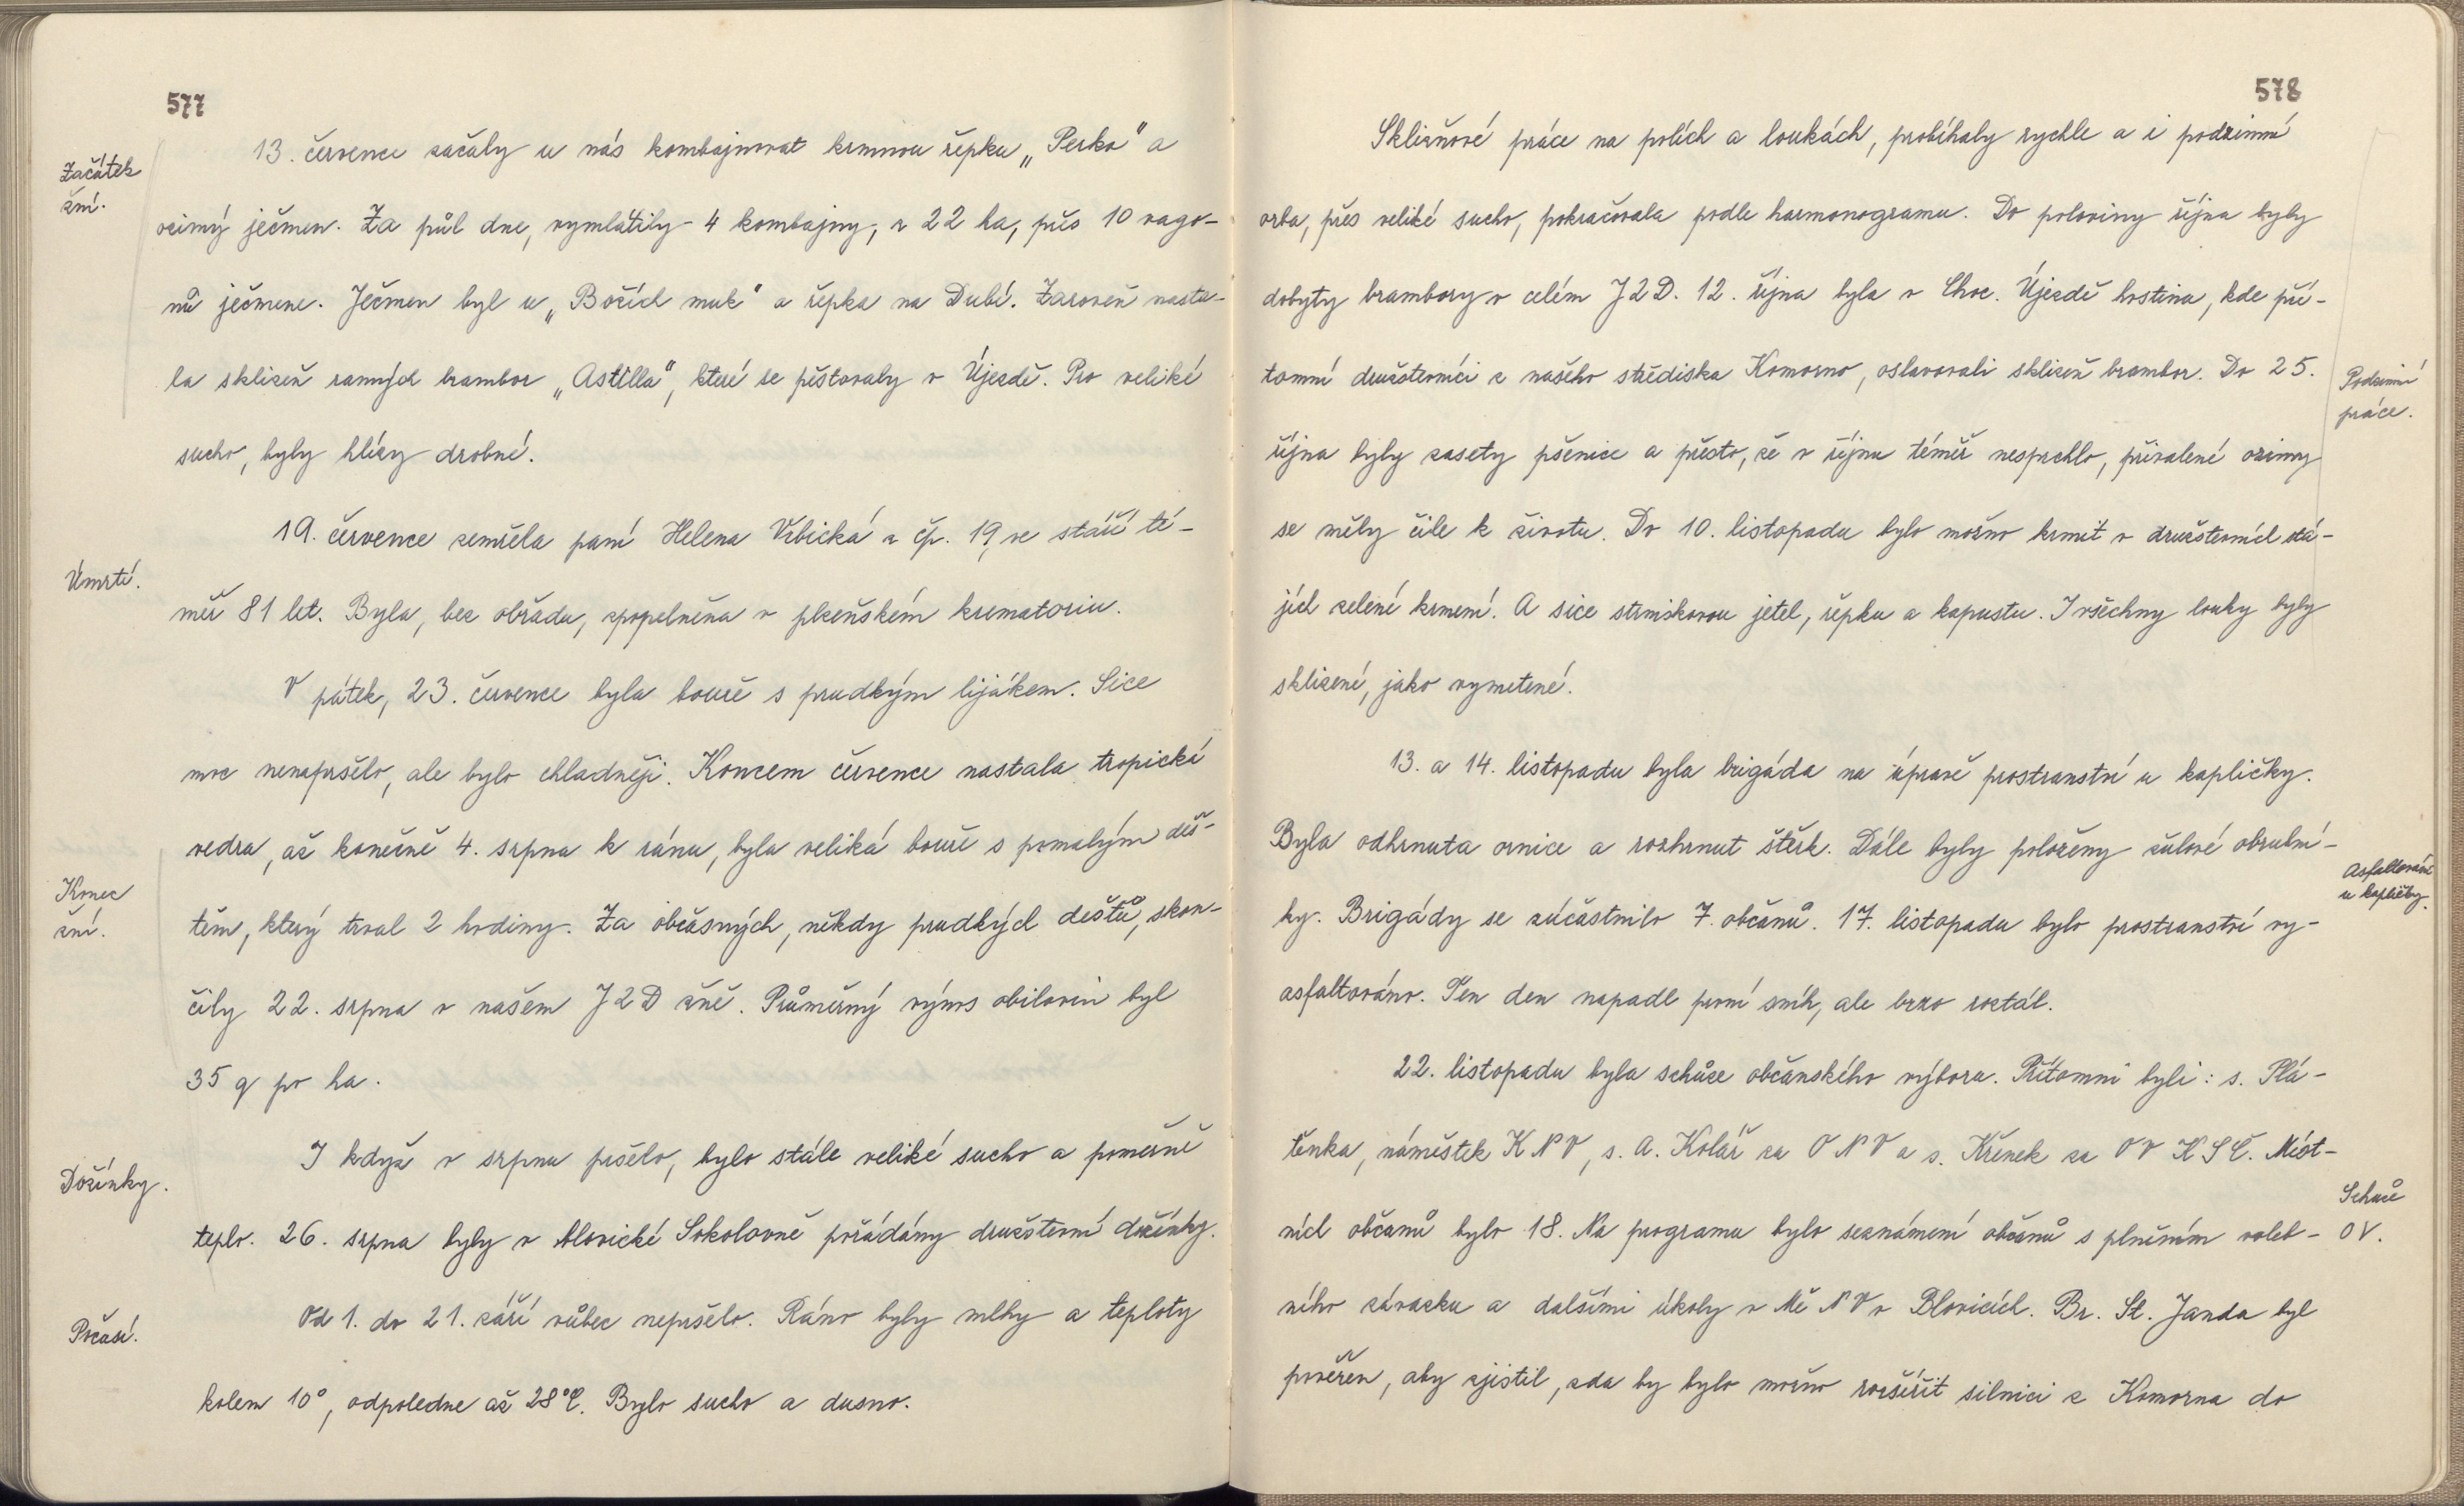 577
Začátek
žní.
13. července začaly u nás kombajnovat krmnou řepku „Perko" a
ozimý ječmen. Za půl dne, vymlátily - 4 kombajny, z 22 ha, přes 10 vago-
nů ječmene. Ječmen byl u „Božích muk" a řepka na Dubí. Zároveň nasta-
la sklizeň ranných brambor „Astilla", které se pěstovaly v Újezdě. Pro veliké
sucho, byly hlízy drobné.
Úmrtí.
19. července zemřela paní Helena Vrbická z čp. 19, ve stáří té-
měř 81 let. Byla, bez obřadu, zpopelněna v plzeňském krematoriu.
V pátek, 23. července byla bouře s prudkým lijákem. Sice
moc nenapršelo, ale bylo chladněji. Koncem července nastala tropická
vedra, až konečně 4. srpna k ránu, byla veliká bouře s pomalým deš-
Konec
žní.
těm, který trval 2 hodiny. Za občasných, někdy prudkých dešťů, skon-
čily 22. srpna v našem JZD žně. Průměrný výnos obilovin byl
35 q po ha.
Dožínky.
I když v srpnu pršelo, bylo stále veliké sucho a poměrně
teplo. 26. srpna byly v blovické Sokolovně pořádány družstevní dožínky.
Počasí.
Od 1. do 21. září vůbec nepršelo. Ráno byly mlhy a teploty
kolem 10°, odpoledne až 28°C. Bylo sucho a dusno.
578
Sklizňové práce na polích a loukách, probíhaly rychle a i podzimní
orba, přes veliké sucho, pokračovala podle harmonogramu. Do poloviny října byly
dobyty brambory v celém JZD. 12. října byla v Choc. Újezdě hostina, kde pří-
tomní družstevníci z našeho střediska Komorno, oslavovali sklizeň brambor. Do 25.
Podzimní
práce.
října byly zasety pšenice a přesto, že v říjnu téměř nesprchlo, přivalené ozimy
se měly čile k životu. Do 10. listopadu bylo možno krmit v družstevních stá-
jích zelené krmení. A sice strniskovou jetel, řepku a kapustu. I všechny louky byly
sklizené, jako vymetené.
13. a 14. listopadu byla brigáda na úpravě prostranství u kapličky.
Byla odhrnuta ornice a rozhrnut štěrk. Dále byly položeny žulové obrubní-
Asfaltování
u kapličky.
ky. Brigády se zúčastnilo 7. občanů. 17. listopadu bylo prostranství vy-
asfaltováno. Ten den napadl první sníh, ale brzo roztál.
22. listopadu byla schůze občanského výboru. Přítomni byli: s. Plá-
těnka, náměstek KNV, s. A. Kolář za ONV a s. Křenek za OV KSČ. Míst-
Schůze
OV.
ních občanů bylo 18. Na programu bylo seznámení občanů s plněním voleb-
ního závazku a dalšími úkoly v MěNV v Blovicích. Br. St. Janda byl
pověřen, aby zjistil, zda by bylo možno rozšířit silnici z Komorna do